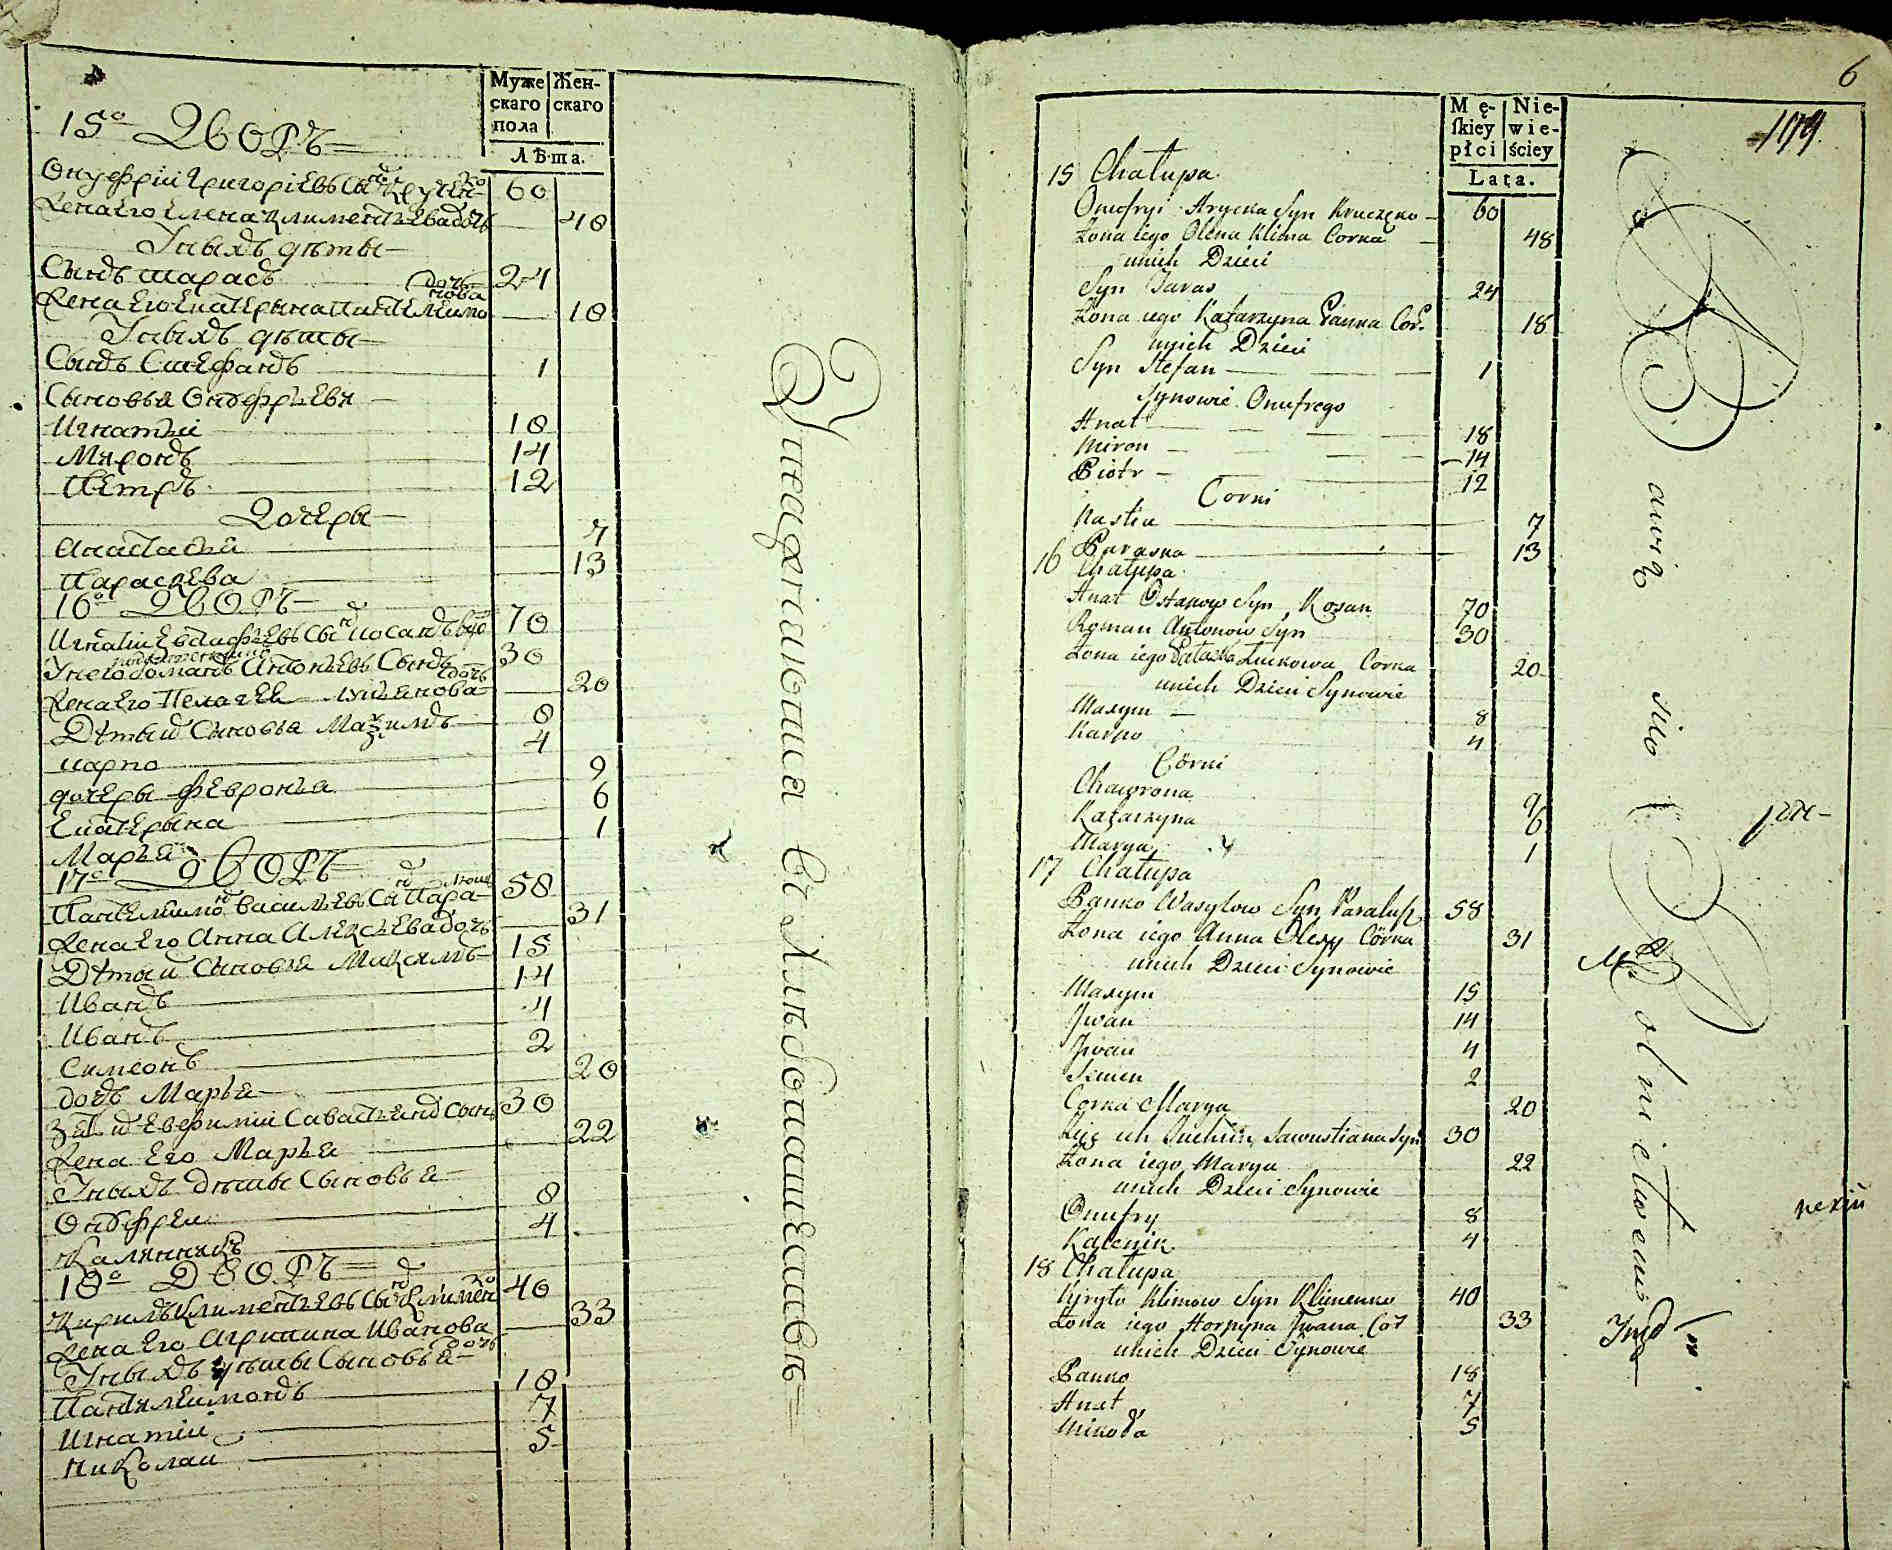 Муже
скаго
пола
Жен-
скаго
Лѣта.
15º Дворъ
Онуфрій Григоріевъ Сынъ Кручен-ко 60
Жена Его Елена Климентьева дочь 48
У ныхъ дѣты
Сынъ Тарасъ 24
Жена Его Екатерына Пантелеимо нова дочь 18
У ныхъ дѣты
Сынъ Стефанъ 1
Сыновья Онуфрьевы
Игнатьй 18
Миронъ 14
Петръ 12
Дочеры
Анастасья 7
Параскева 13
16º Дворъ
Игнатій Евстафьевъ Сынъ 70
У него Романъ Антоньевъ Сынъ 30
Жена Его Пелагея Лукьянова дочь 20
Дѣты и Сыновья Макзимъ 8
Карпо 4
дочеры Февронья 9
Екатерына 6
Марья 1
17º Дворъ
Пантелеимонъ Васильевъ Сынъ Пара- 58
Жена Его Анна Алексьева дочь 31
Дѣты и Сыновья Максимъ 15
Иванъ 14
Иванъ 4
Симеонъ 2
дочь Марья 20
Зять и Евфимій Савастьянъ Сынъ 30
Жена Его Марья 22
У ныхъ дѣты Сыновья
Онуфреи 8
Калинникъ 4
18º Дворъ
Кирилъ Климентьевъ Сынъ Климен ко 40
Жена Его Агрипина Иванова дочь 33
У ныхъ дѣты Сыновья
Пантилеимонъ 18
Игнатіи 7
Николаи 5
въ
6
199
Mę-
ſkiey
płci
Nie-
wie-
ściey
Lata.
15 Chałupa
Onufryi Hrycka Syn Kruczęko 60
Zona iego Olena Klima Corka 48
unich Dzieci
Syn Taras 24
Zona iego Katarzyna Panka Cor. 18
unich Dzieci
Syn Stefan 1
Synowie Onufrego
Hnat 18
Miron 14
Piotr 12
Corki
Nastia 7
Paraska 13
16 Chałupa
Hnat Ostapow Syn Kosan 70
Roman Antonow Syn 30
Zona iego Pałaszka Łukowa Corka 20
unich Dzieci Synowie
Maxym 8
Karpo 4
Córki
Chawrona 9
Katarzyna 6
Marya 1
17 Chałupa
Panko Wasylow Syn 58
Zona iego Anna Olexy Córka 31
unich Dzieci Synowie
Maxym 15
Jwan 14
Jwan 4
Simen 2
Corka Marya 20
Zięć ich Juchim Sawustiana Syn 30
Zona iego Marya 22
unich Dzieci Synowie
Onufry 8
Kalenik 4
18 Chałupa
Kyryło Klimow Syn Klimenko 40
Zona iego Horpyna Jwana Cor 33
unich Dzieci Synowie
Panko 18
Hnat 7
Mikoła 5